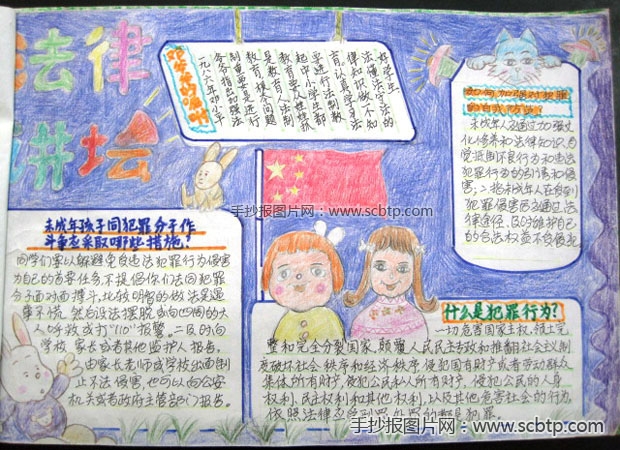 法律
讲坛
邓爷爷的嘱咐
一九八六年邓小平
爷爷指出加强法
制重要是进行
教育,根本问题
是教育人,法制
教育要从娃娃抓
起,中小学生都
要进行法制教
育,认真学习法
律知识,做个知
法懂法守法的
好学生。
如何加强对犯罪
的自我防范:
未成年人通过加强文
化修养和法律知识,自
觉远离不良行为和违法
犯罪行为的引诱和侵
害,二指未成年人在受到
犯罪侵害后通过法
律途径,及时维护自己
的合法权益不会侵犯
手抄报图片网:www.scbtp.com
未成年孩子同犯罪分子作
斗争应采取哪些措施?
同学们要以躲避免受违法犯罪行为侵害
为自己的首要任务不提倡你们去同犯罪
分子面对面搏斗,比较明智的做法是遇
事不慌,然后设法摆脱,或向四周的大
人呼救或打"110"报警,二及时向
学校、家长或者其他监护人报告。
由家长老师或学校出面制
止不法侵害,也可以向公安
机关或者政府主管部门报告。
什么是犯罪行为?
一切危害国家主权,领土完
整和完全分裂国家,颠覆人民民主专政和推翻社会主义制
度破坏社会秩序和经济秩序,侵犯国有财产或者劳动群众
集体所有财产,侵犯公民私人所有财产,侵犯公民的人身
权利,民主权利和其他权利,以及其他危害社会的行为,
依照法律应受刑罚处罚的都是犯罪。
手抄报图片网:www.scbtp.com